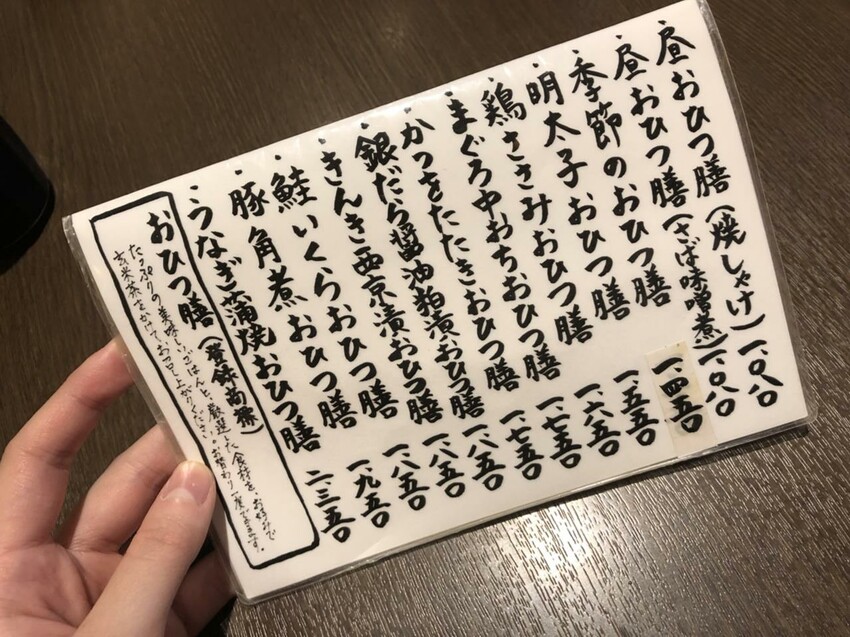 ・昼おひつ膳(焼しゃけ)一、〇八〇
・昼おひつ膳(さば味噌煮)一、〇八〇
・季節のおひつ膳 一、四五〇
・明太子おひつ膳 一、五五〇
・鶏ささみおひつ膳 一、六五〇
・まぐろ中おちおひつ膳 一、七五〇
・かつをたたきおひつ膳 一、七五〇
・銀だら醤油粕漬おひつ膳 一、八五〇
・きんき西京漬おひつ膳 一、八五〇
・鮭いくらおひつ膳 一、八五〇
・豚角煮おひつ膳 一、九五〇
・うなぎ蒲焼おひつ膳 二、三五〇
おひつ膳(登録商標)
たっぷりの美味しいごはんと、厳選した食材を、お好みで
玄米茶をかけてお召し上がりください。お替わり一度できます。